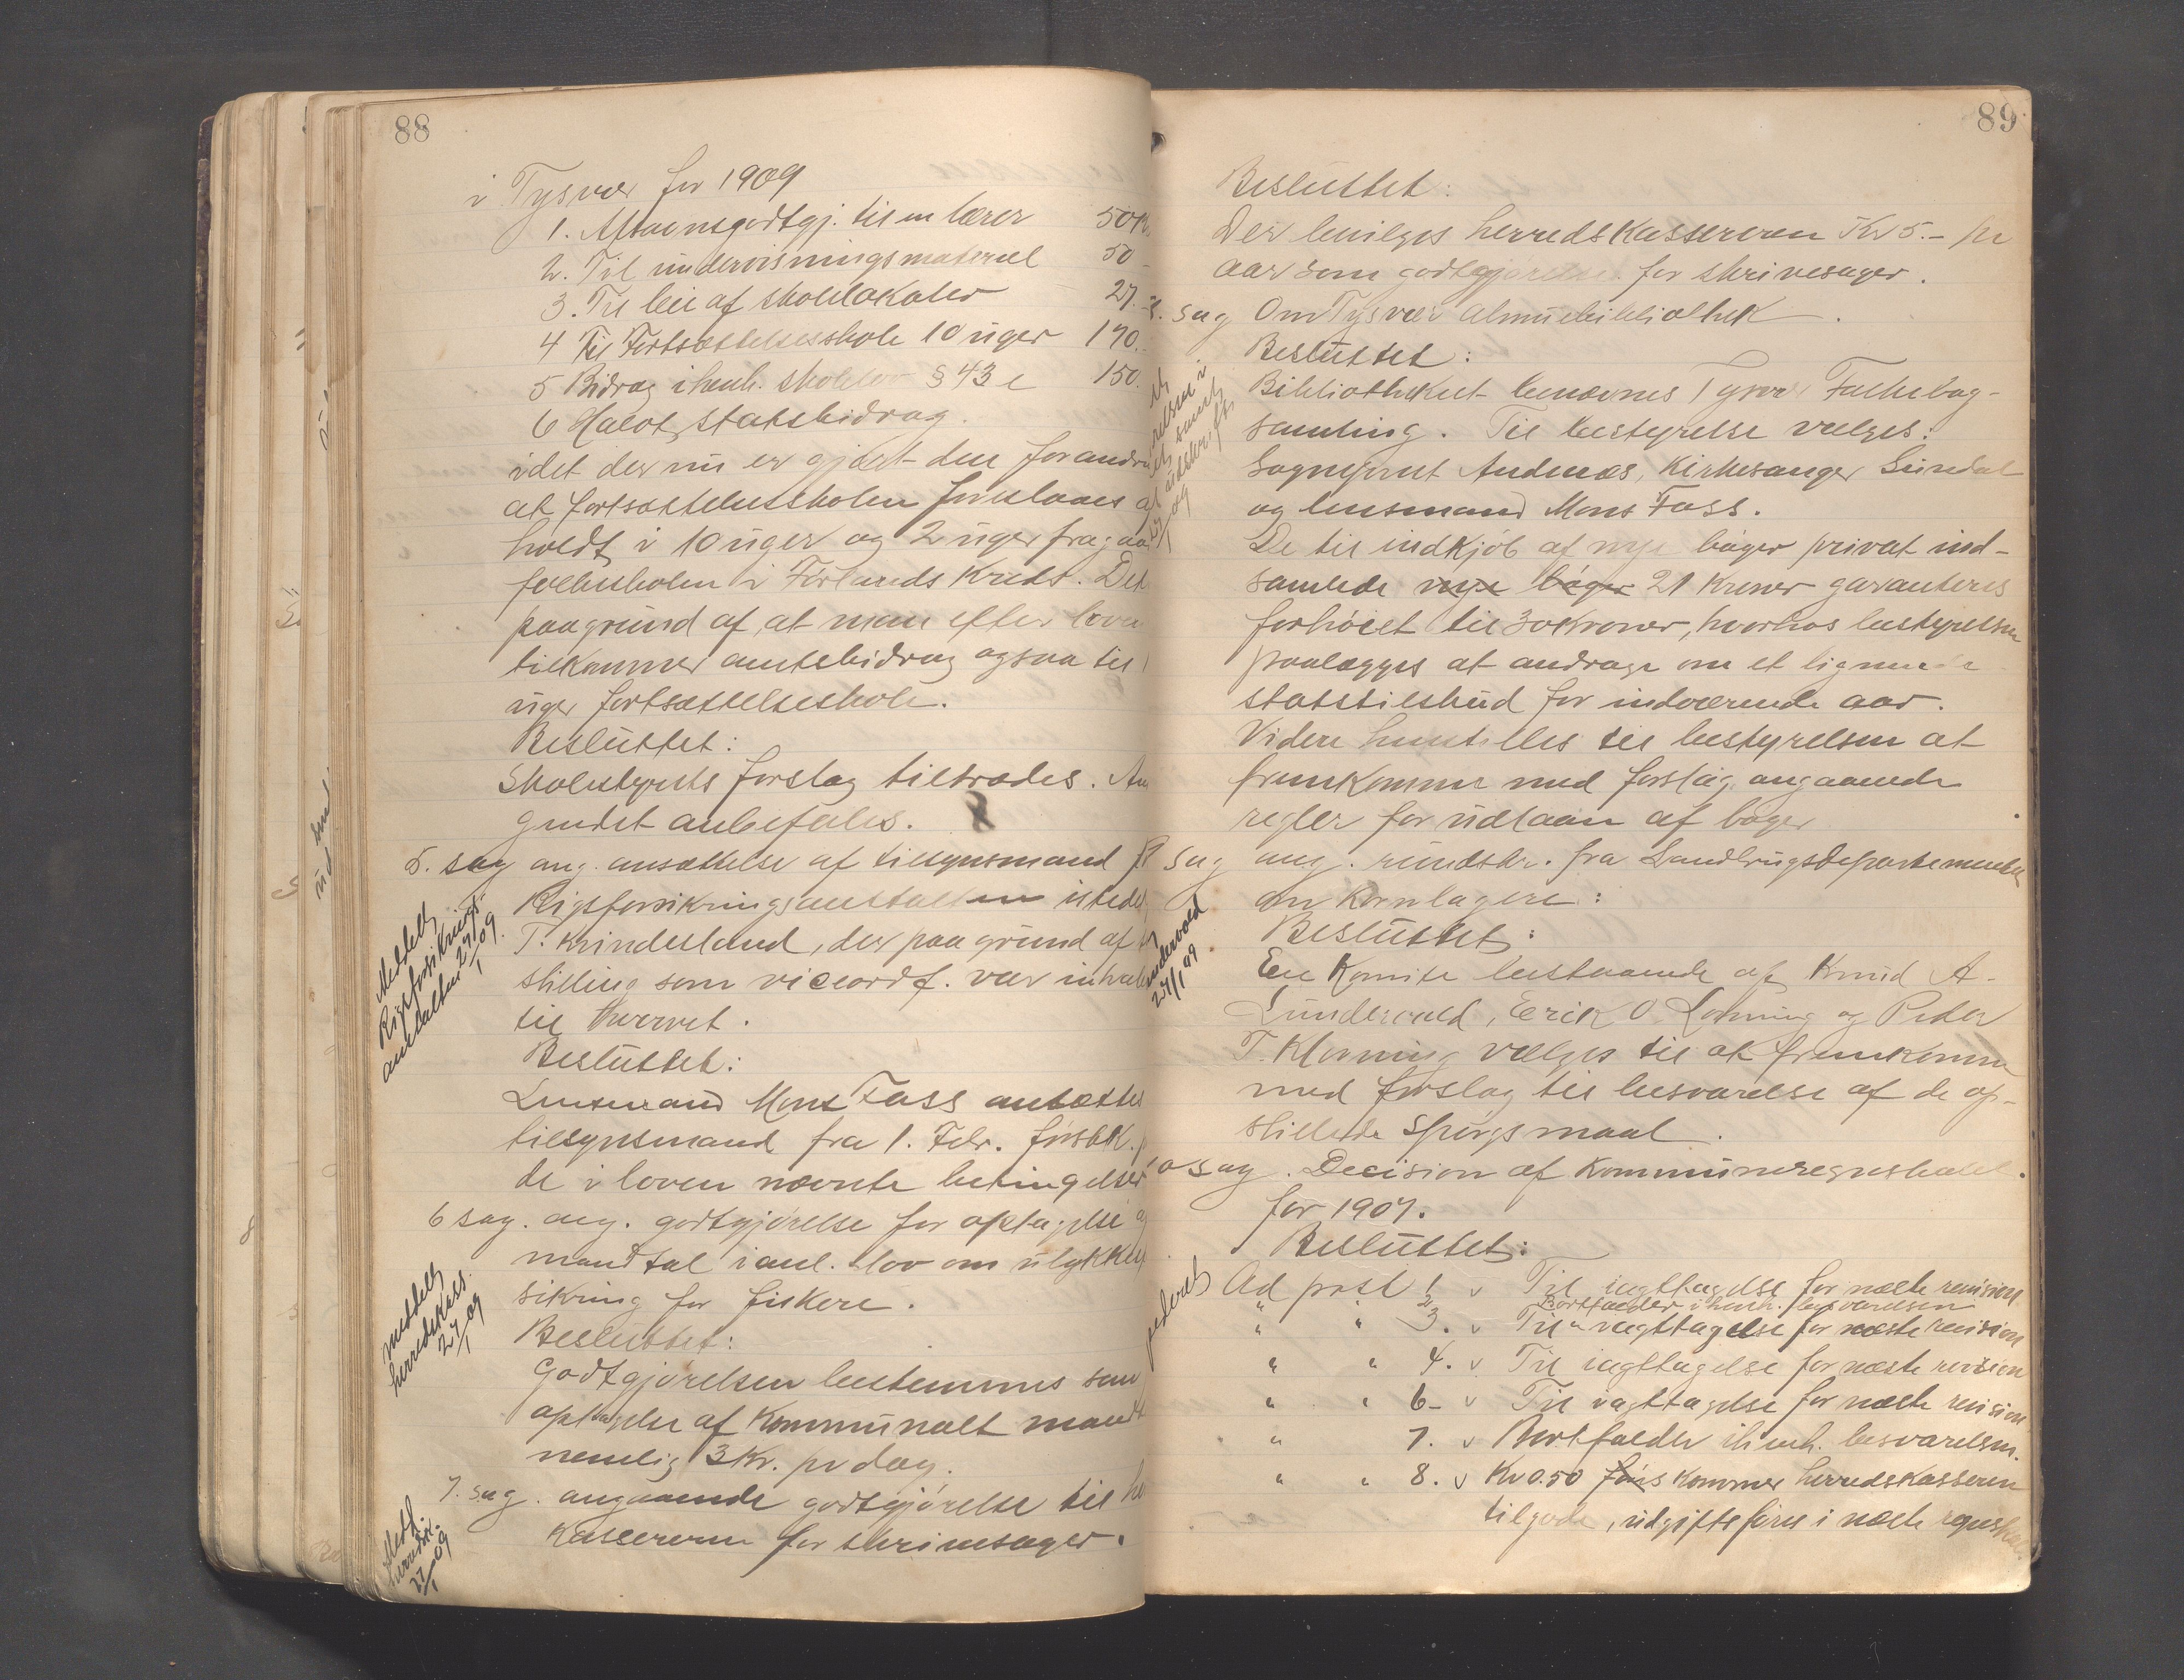 88
i Tysvær for 1909
1. Aftaensgodtgj. til en lærer 50
2. Til undervisningsmateriel 50 -
3. Til leie af skolelokaler 27.
4 Til Fortsættelsesskole 10 uger 190.
5 Bidrag i henh. skolelov § 43 e 150.
6 Halvt statsbidrag.
idet der nu er gjort den forandr
at fortsættelsesskolen foreslaaes af
holdt i 10 uger og 2 uger fragaa
folkeskolen i Førlands Kreds. Det
paagrund af, at man efter loven
tilkommer amtsbidrag ogsaa til
uger fortsættelsesskole.
Besluttet:
Skolestyrets forslag tiltrædes. An
gendet anbefales.
5. sag ang. ansættelse af tilsynsmand f
Rigsforsikringsanstalten isteden
T. Krindesland, der paa grund af
stilling som viceordf. var inhabi
til hvervet.
Besluttet:
Lensmand Mons Fass ansættes
tilsynsmand fra 1. Febr. førstk. p
de i loven nævnte betingelser
Meddelt
Rigsforsikrings-
anstalten 27/1 09.
6 sag. ang. godtgjørelse for optagelse a
mandtal i anl. lov om ulykkes
sikring for fiskere.
Besluttet:
Godtgjørelsen bestemmes som
optagelse af Kommunalt mandt
nemlig 3 Kr. pr dag.
meddelt
herredskass.
27/1 09
7. sag. angaaende godtgjørelse til he
Kassereren for skrivesager.
Medd.
herredsk.
27/1 09
89
Besluttet:
Der bevilges herredskassereren Kr 5.- pr
aar som godtgjørelse for skrivesager.
8. sag Om Tysvær almuebibliothek.
Besluttet:
Bibliotheket benævnes Tysvær Folkebog-
samling. Til bestyrelse vælges:
Sogneprest Andenæs, Kirkesanger Sundal
og lensmand Mons Fass.
De til indkjøb af nye bøger privat ind-
samlede nye bøger 21 Kroner garanteres
forhøiet til 30 kroner, hvorhos bestyrelsen
paalægges at andrage om et lignende
statstilskud for indeværende aar.
Videre henstilles til bestyrelsen at
fremkomme med forslag angaaende
regler for udlaan af bøger
sag ang. rundskr. fra Landbrugsdepartementet
om Kornlagere:
Besluttet:
En Komite bestaaende af Knud A.
Lundervold, Erik O. Lønning og Peder
T. Kløvning vælges til at fremkomme
med forslag til besvarelse af de op-
stillede Spørgsmaal.
Lundervold
27/1 09.
10 sag. Decision af Kommuneregnskabet
for 1907.
Besluttet:
Ad post 1 v Til iagttagelse for næste revision.
" " 2 Bortfalder i henh. besvarelsen
" " 3. v Til iagttagelse for næste revision
" " 4. v Til iagttagelse for næste revision
" " 6- v Til iagttagelse for næste revision
" 7. v Bortfalder i henh. besvarelsen.
" " 8. v Kr 0.50 føres kommer herredskasseren
tilgode, udgiftsføres i næste regnskab.